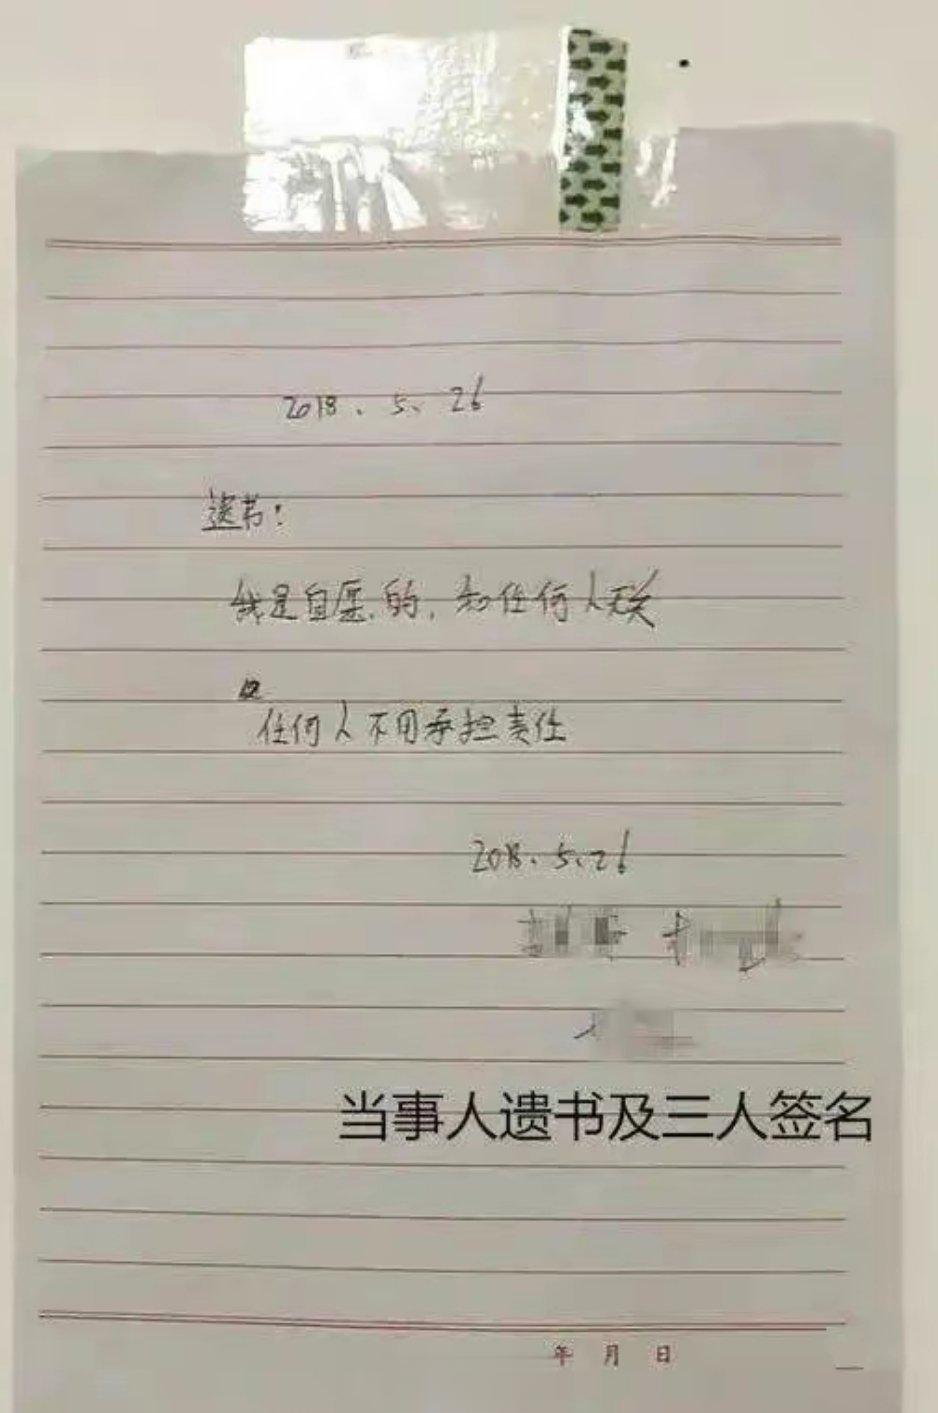 2018、5、26
遗书：
我是自愿的，和任何人无关
任何人不用承担责任
2018、5、26
当事人遗书及三人签名
年 月 日